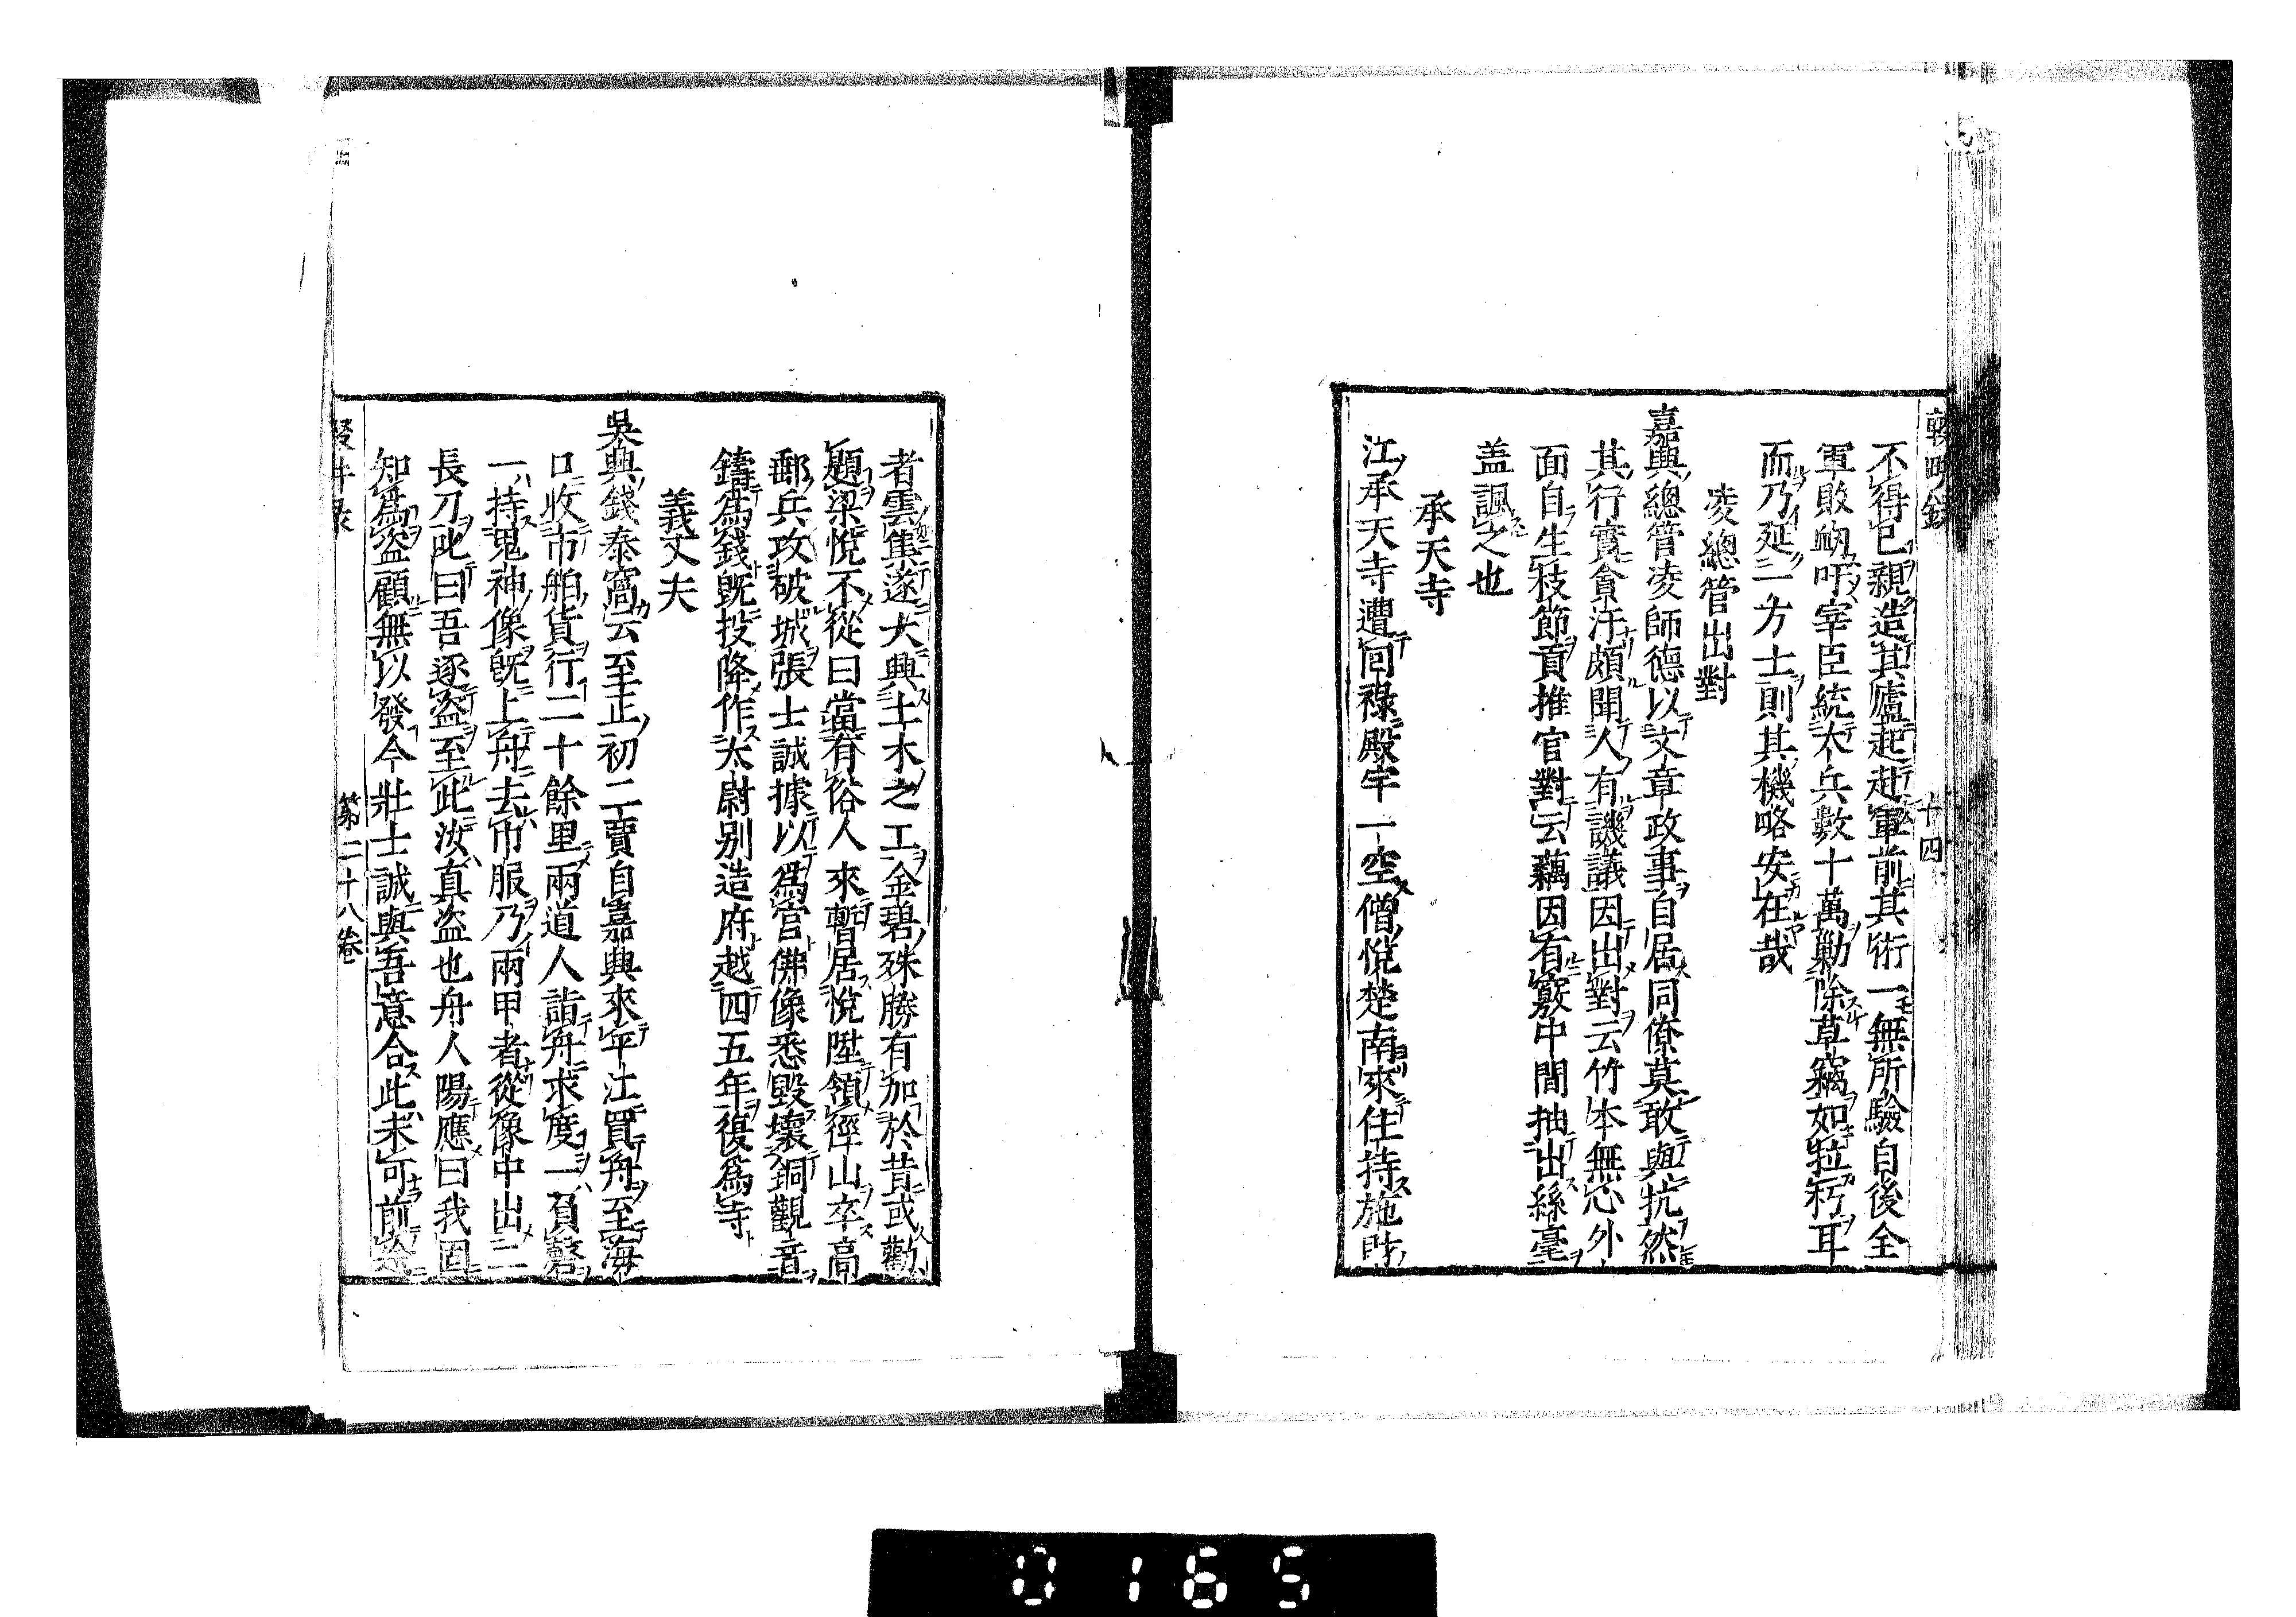 輟畊録
十四
不得已親造其廬起赴軍前其術一無所驗自後全
軍敗衂吁宰臣統大兵數十萬勦除草竊如拉朽耳
而乃延一方士則其機略安在哉
凌總管出對
嘉興總管凌師德以文章政事自居同僚莫敢與抗然
其行實貪汙頗聞人有譏議因出對云竹本無心外
面自生枝節貢推官對云藕因有竅中間抽出絲毫
盖諷之也
承天寺
江承天寺遭回祿殿宇一空僧悅楚南來住持施財
者雲集遂大興土木之工金碧殊勝有加於昔或勸
題梁悅不從曰當有俗人來暫居悅陞領徑山卒高
郵兵攻破城張士誠據以爲官佛像悉毀壞銅觀音
鑄爲錢旣投降作太尉別造府越四五年復爲寺
義丈夫
吳興錢泰窩云至正初二賈自嘉興來平江買舟至海
口收市舶貨行二十餘里兩道人詣舟求度一負磬
一持鬼神像旣上舟去巾服乃兩甲者從像中出二
長刀叱曰吾逐盗至此汝真盗也舟人陽應曰我固
知爲盗顧無以發今壯士誠與吾意合此未可前途
第二十八卷
0165